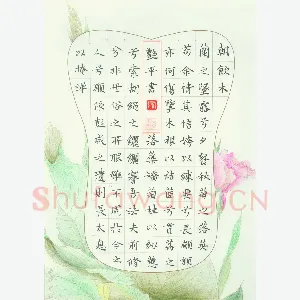 朝飲木
蘭之墜露兮夕餐秋菊之落英
苟余情其信姱以練要兮長顑頷
亦何傷擥木根以結茝兮貫薜荔之
落蕊矯菌桂以紉蕙
兮索胡繩之纚纚謇吾法夫前修
兮非世俗之所服雖不周於今之
人兮願依彭咸之遺則長太息
以掩涕
Shufawang.CN